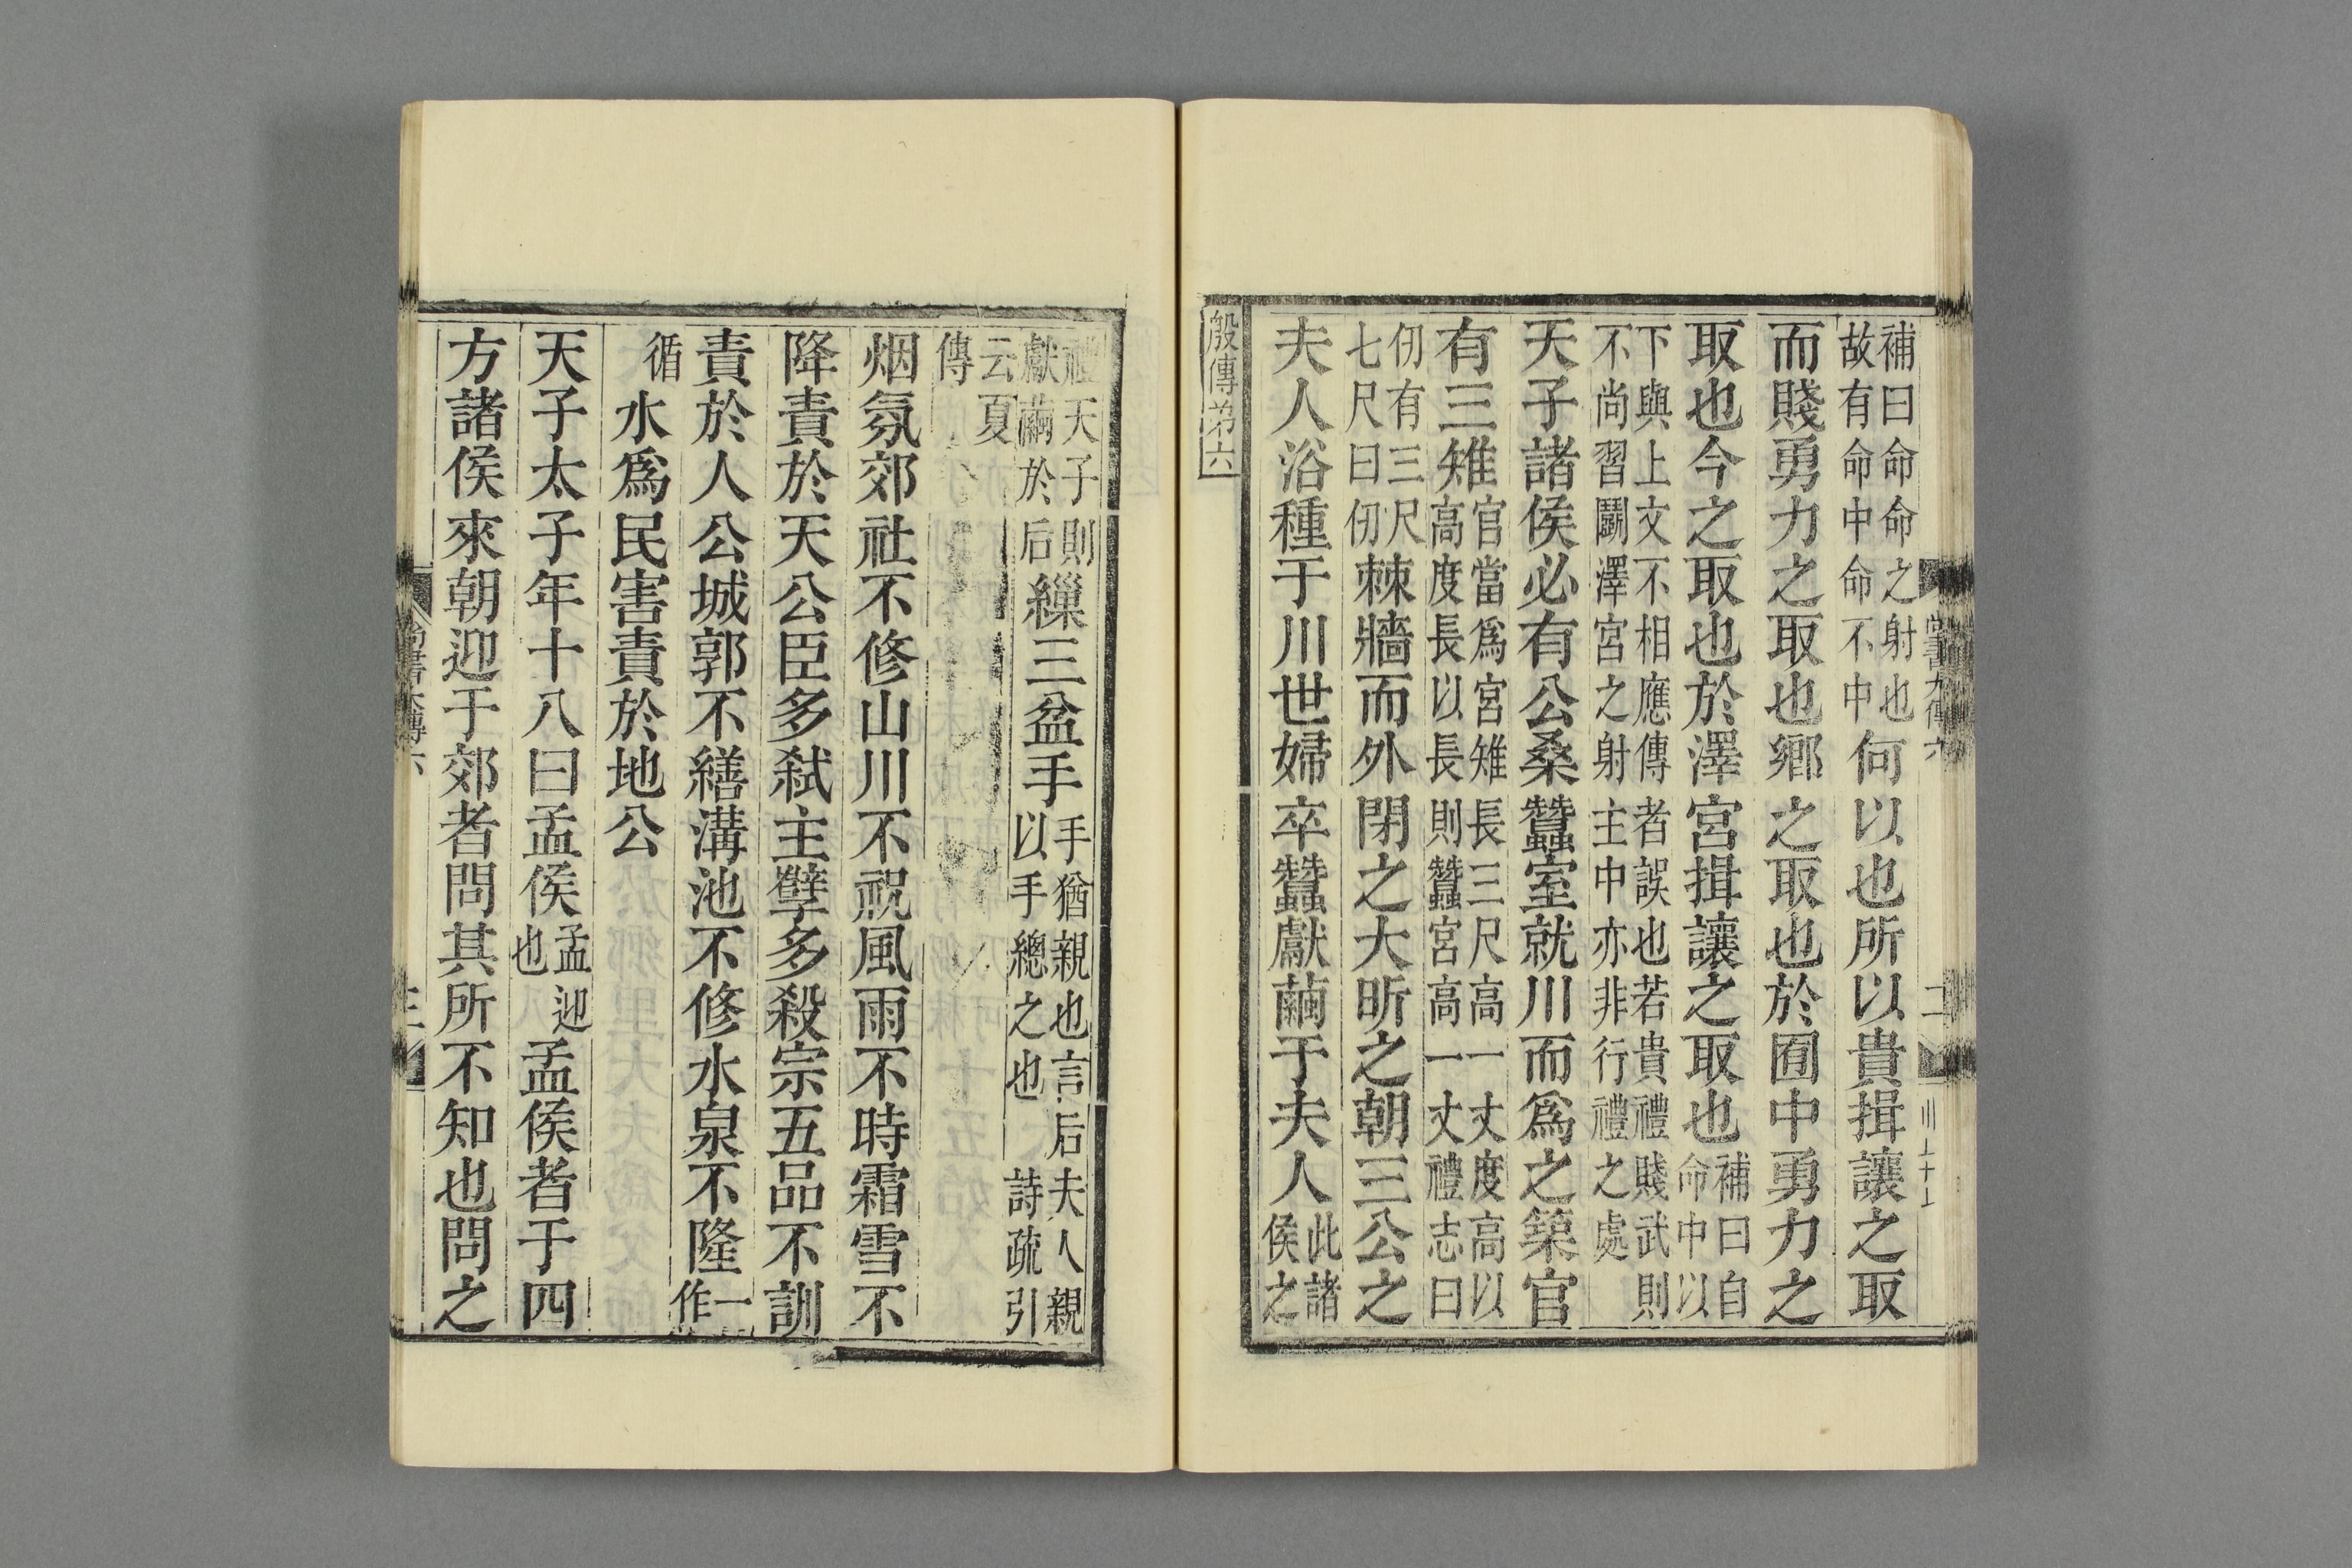 補曰命命之射也故有命中命不中何以也所以貴揖讓之取
而賤勇力之取也鄉之取也於囿中勇力之
取也今之取也於澤宮揖讓之取也補曰自命中以
下與上文不相應傳者誤也若貴禮賤武則不尚習鬭澤宮之射主中亦非行禮之處
天子諸侯必有公桑蠶室就川而爲之築官
有三雉官當爲宮雉長三尺高一丈度高以高度長以長則蠶宮高一丈禮志曰
仞有三尺七尺曰仞棘牆而外閉之大昕之朝三公之
夫人浴種于川世婦卒蠶獻繭于夫人此諸侯之
殷傳弟六
禮天子則獻繭於后繅三盆手手猶親也言后夫人親以手總之也詩疏引
云夏傳
烟氛郊社不修山川不祝風雨不時霜雪不
降責於天公臣多弑主孽多殺宗五品不訓
責於人公城郭不繕溝池不修水泉不隆一作
循水爲民害責於地公
天子太子年十八曰孟侯孟迎也孟侯者于四
方諸侯來朝迎于郊者問其所不知也問之